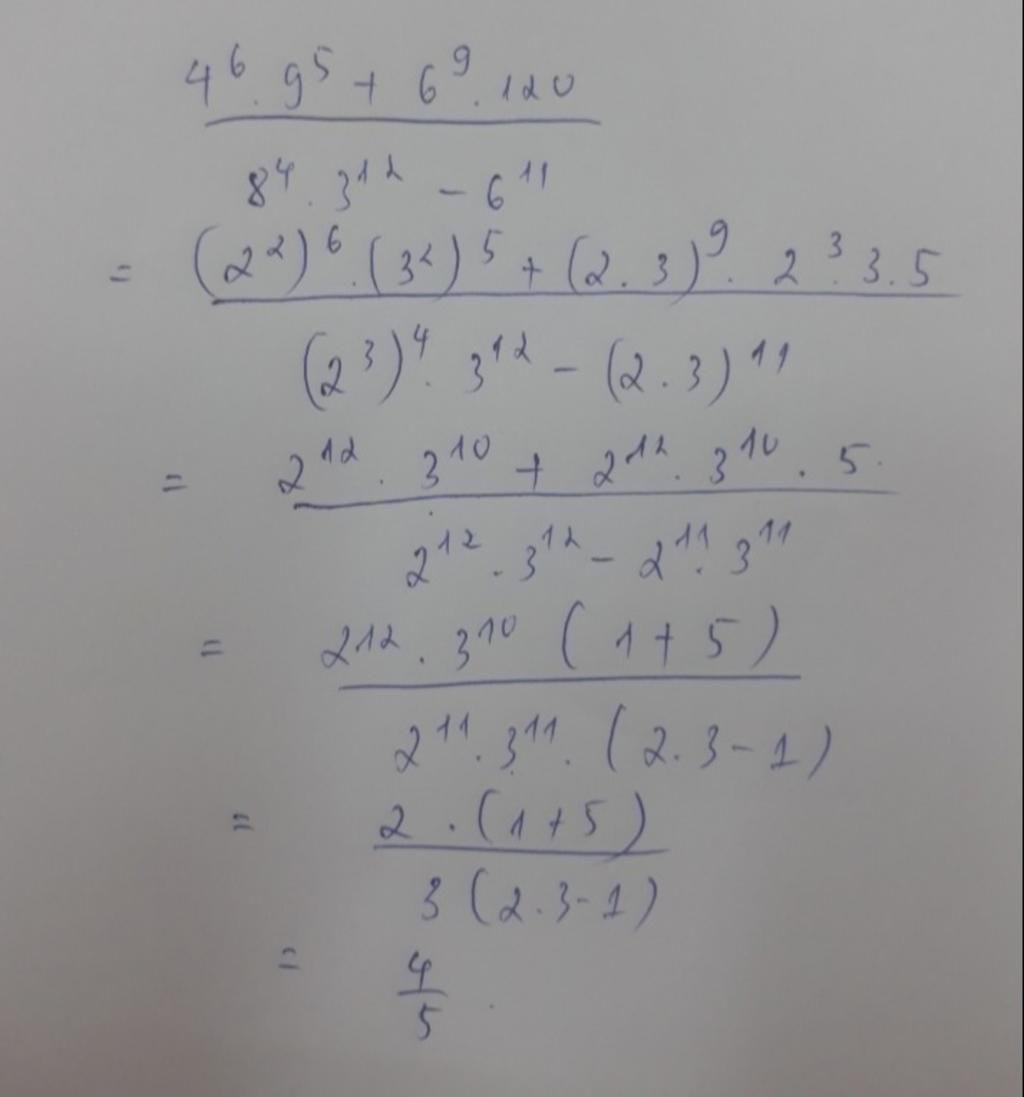 4^6 . 9^5 + 6^9 . 120
8^4 . 3^12 - 6^11
= (2^2)^6 . (3^2)^5 + (2 . 3)^9 . 2^3 . 3 . 5
(2^3)^4 . 3^12 - (2 . 3)^11
= 2^12 . 3^10 + 2^12 . 3^10 . 5
2^12 . 3^12 - 2^11 . 3^11
= 2^12 . 3^10 ( 1 + 5 )
2^11 . 3^11 . ( 2 . 3 - 1 )
= 2 . ( 1 + 5 )
3 ( 2 . 3 - 1 )
= 4
5